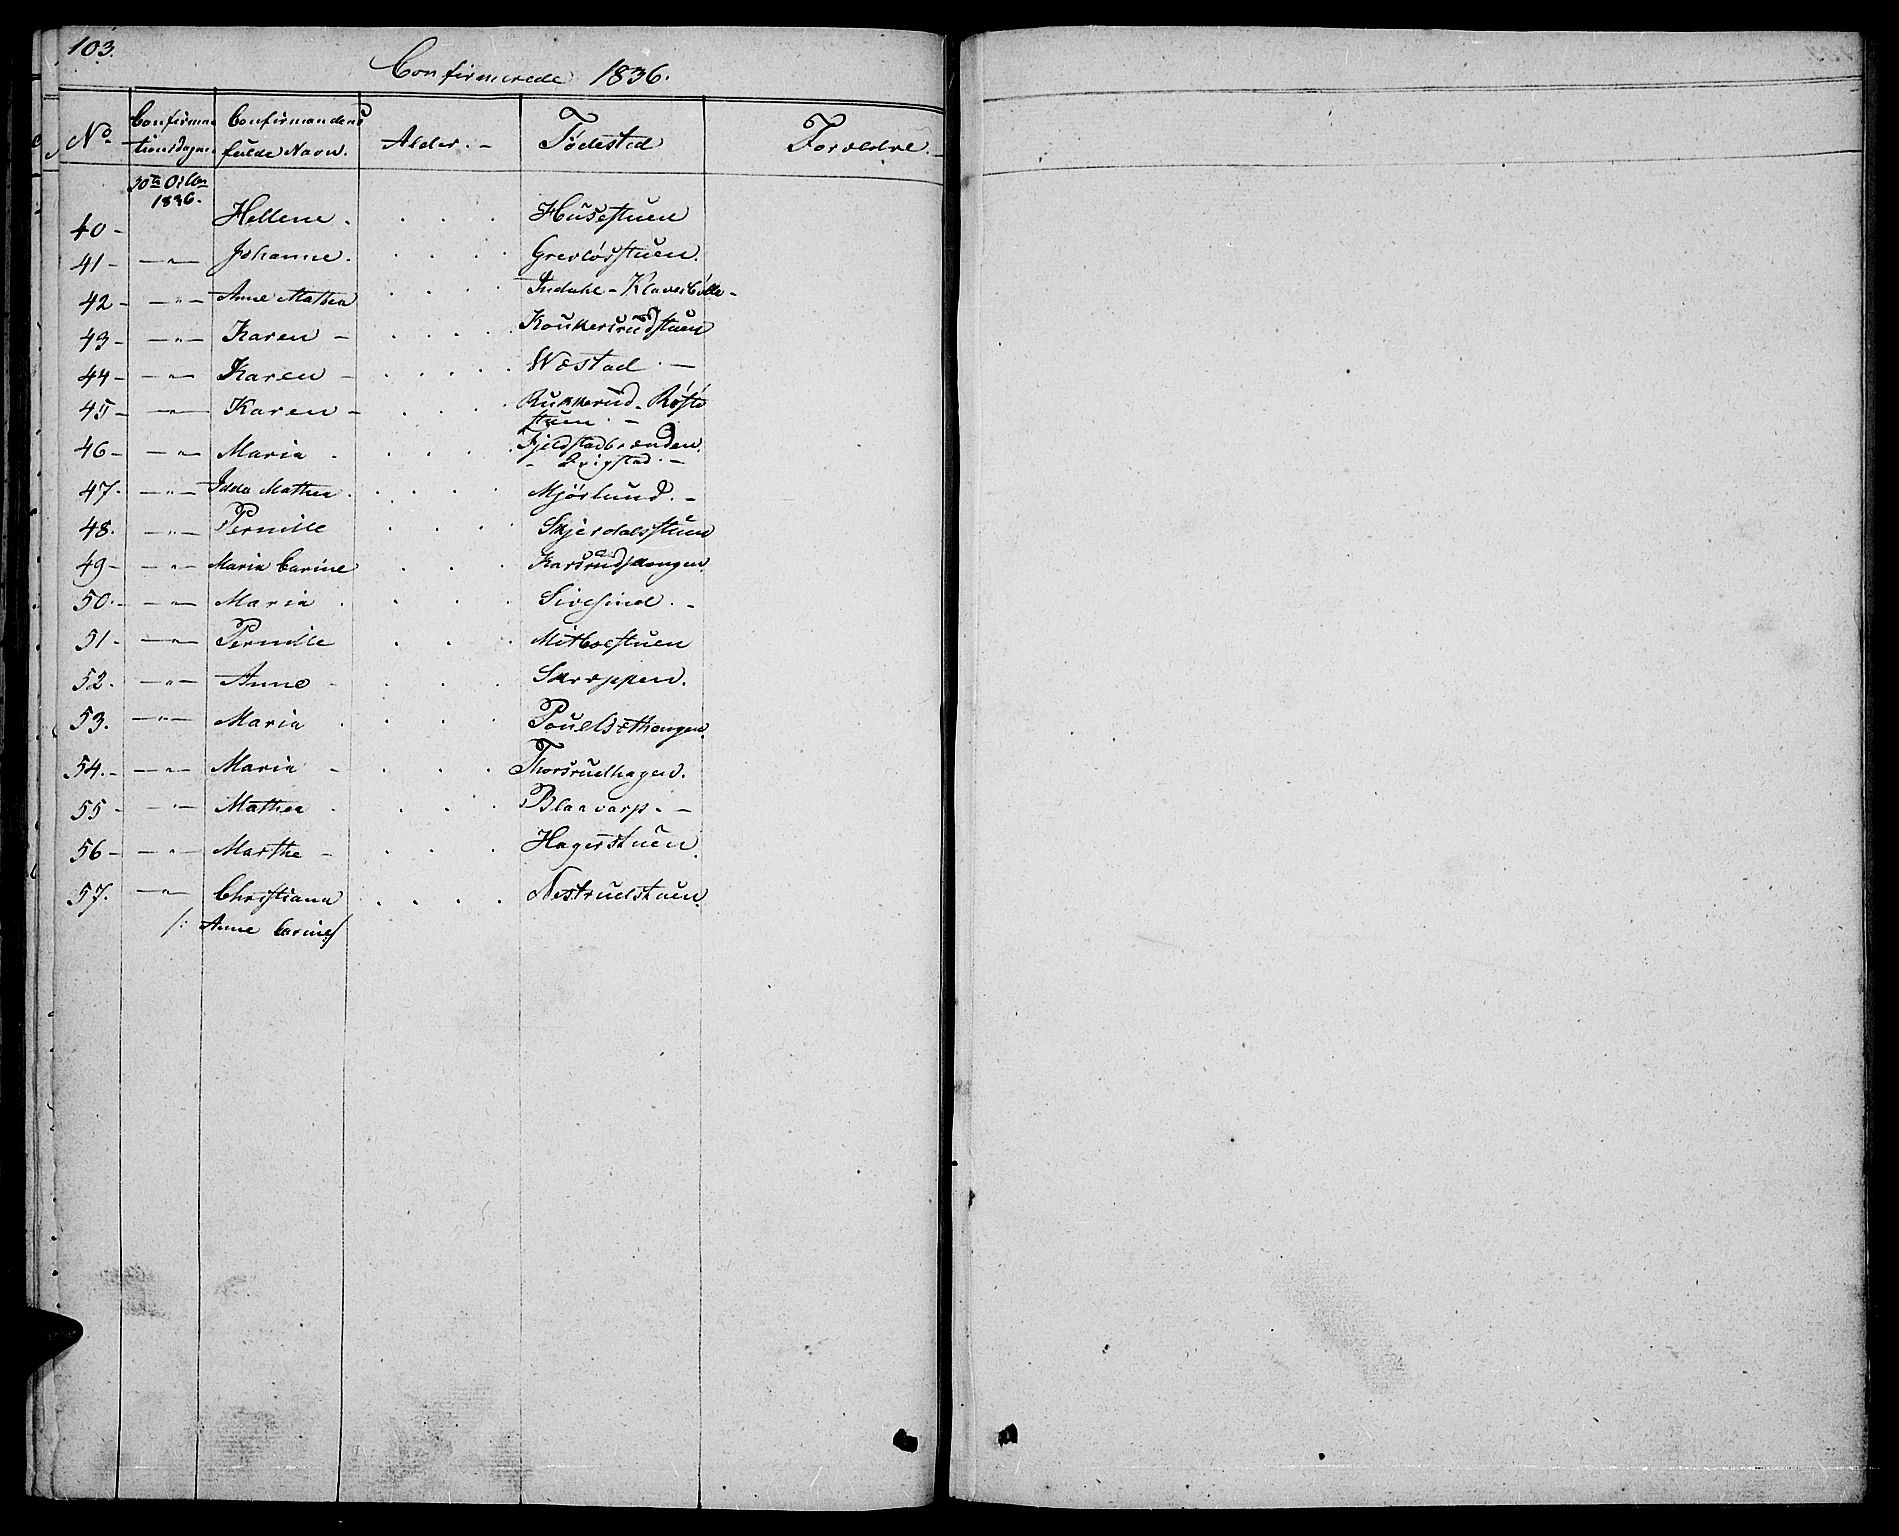 103.
Confirmerede 1836.
No. Confirma- Confirmandens Alder. - Fødested Forældre. -
tionsdagen. fulde Navn.
30te Octbr
1836.
40 - Hellene . . . . Husestuen
41 - — " — Johanne. . . . . Grevlosstuen.
42 - — " — Anne Mathea . . . . Indahl - Klaverbølle -
43 - — " — Karen - . . . . Koukersrudstuen
44 - — " — Karen - . . . . Wæstad. -
45 - — " — Karen - . . . . Rukkerud - Røste
stuen. -
46 - — " — Maria . . . . Fjeldstadbrænden.
- Qvigstad. -
47. — " — Idda Mathea . . . . . Mjørlund. -
48. — " — Pernille . . . . Skjerdalsstuen
49 - — " — Maria Carine . . . Karsrudhaugen.
50. - — " — Maria . . . . Sivesind. -
51 - — " — Pernille . . . Mitboestuen
52. — " — Anne - . . . Skræppen.
53. — " — Maria . . . . Poulsæthaugen.
54. - — " — Maria - . . . Thorsrudhagen.
55 - — " — Mathea . . . . Blaavarp. -
56 - — " — Marthe - . . . Hagerstuen.
57. — " — Christiana . . . . Nestrudstuen.
/: Anne Carine:/